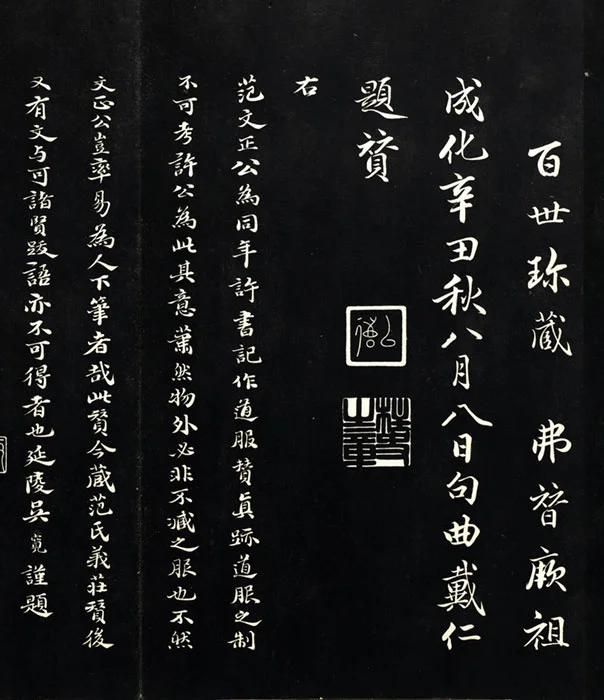 百世珎藏 弗替厥祖
成化辛丑秋八月八日句曲戴仁
題賛
右
范文正公為同年許書記作道服賛真跡道服之制
不可考許公為此其意蕭然物外必非不臧之服也不然
文正公豈率易為人下筆者哉此賛今藏范氏義莊賛後
又有文与可諸賢跋語亦不可得者也延陵吳寬謹題